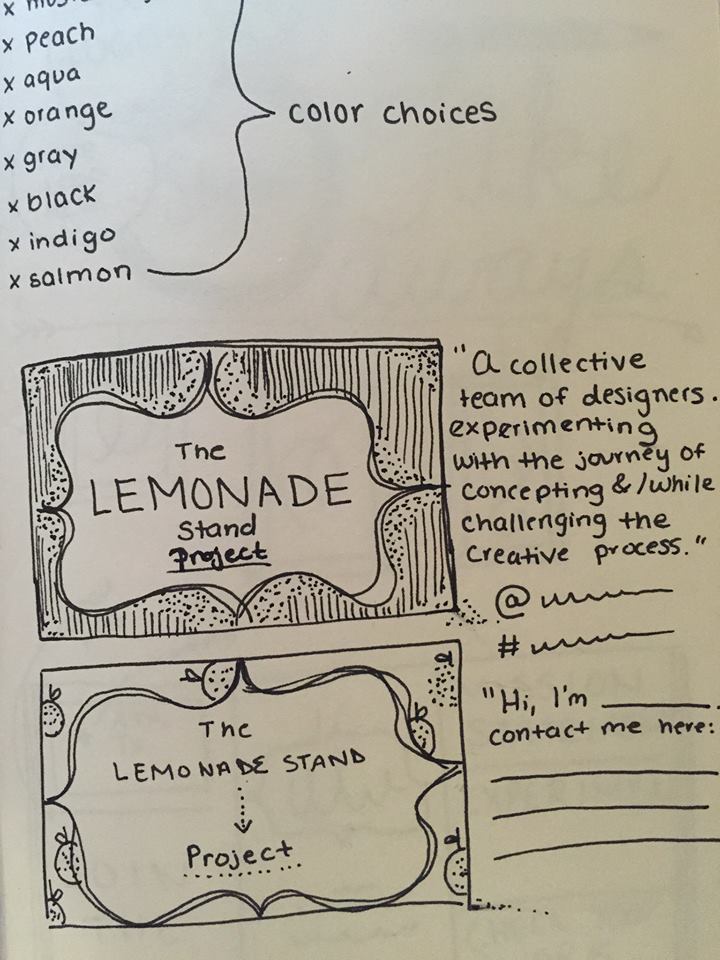 x peach
x aqua
x orange
x gray
x black
x indigo
x salmon
color choices
The
LEMONADE
Stand
Project
"A collective
team of designers.
experimenting
with the journey of
concepting & / while
challenging the
creative process."
@
#
The
LEMONADE STAND
Project
"Hi, I'm ________.
contact me here: